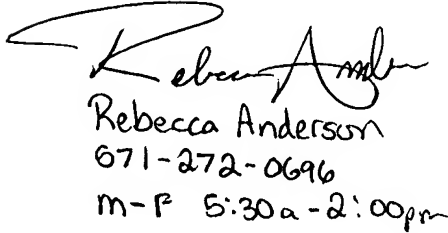 Rebecca Anderson
Rebecca Anderson
571-272-0696
m-F 5:30a-2:00pm